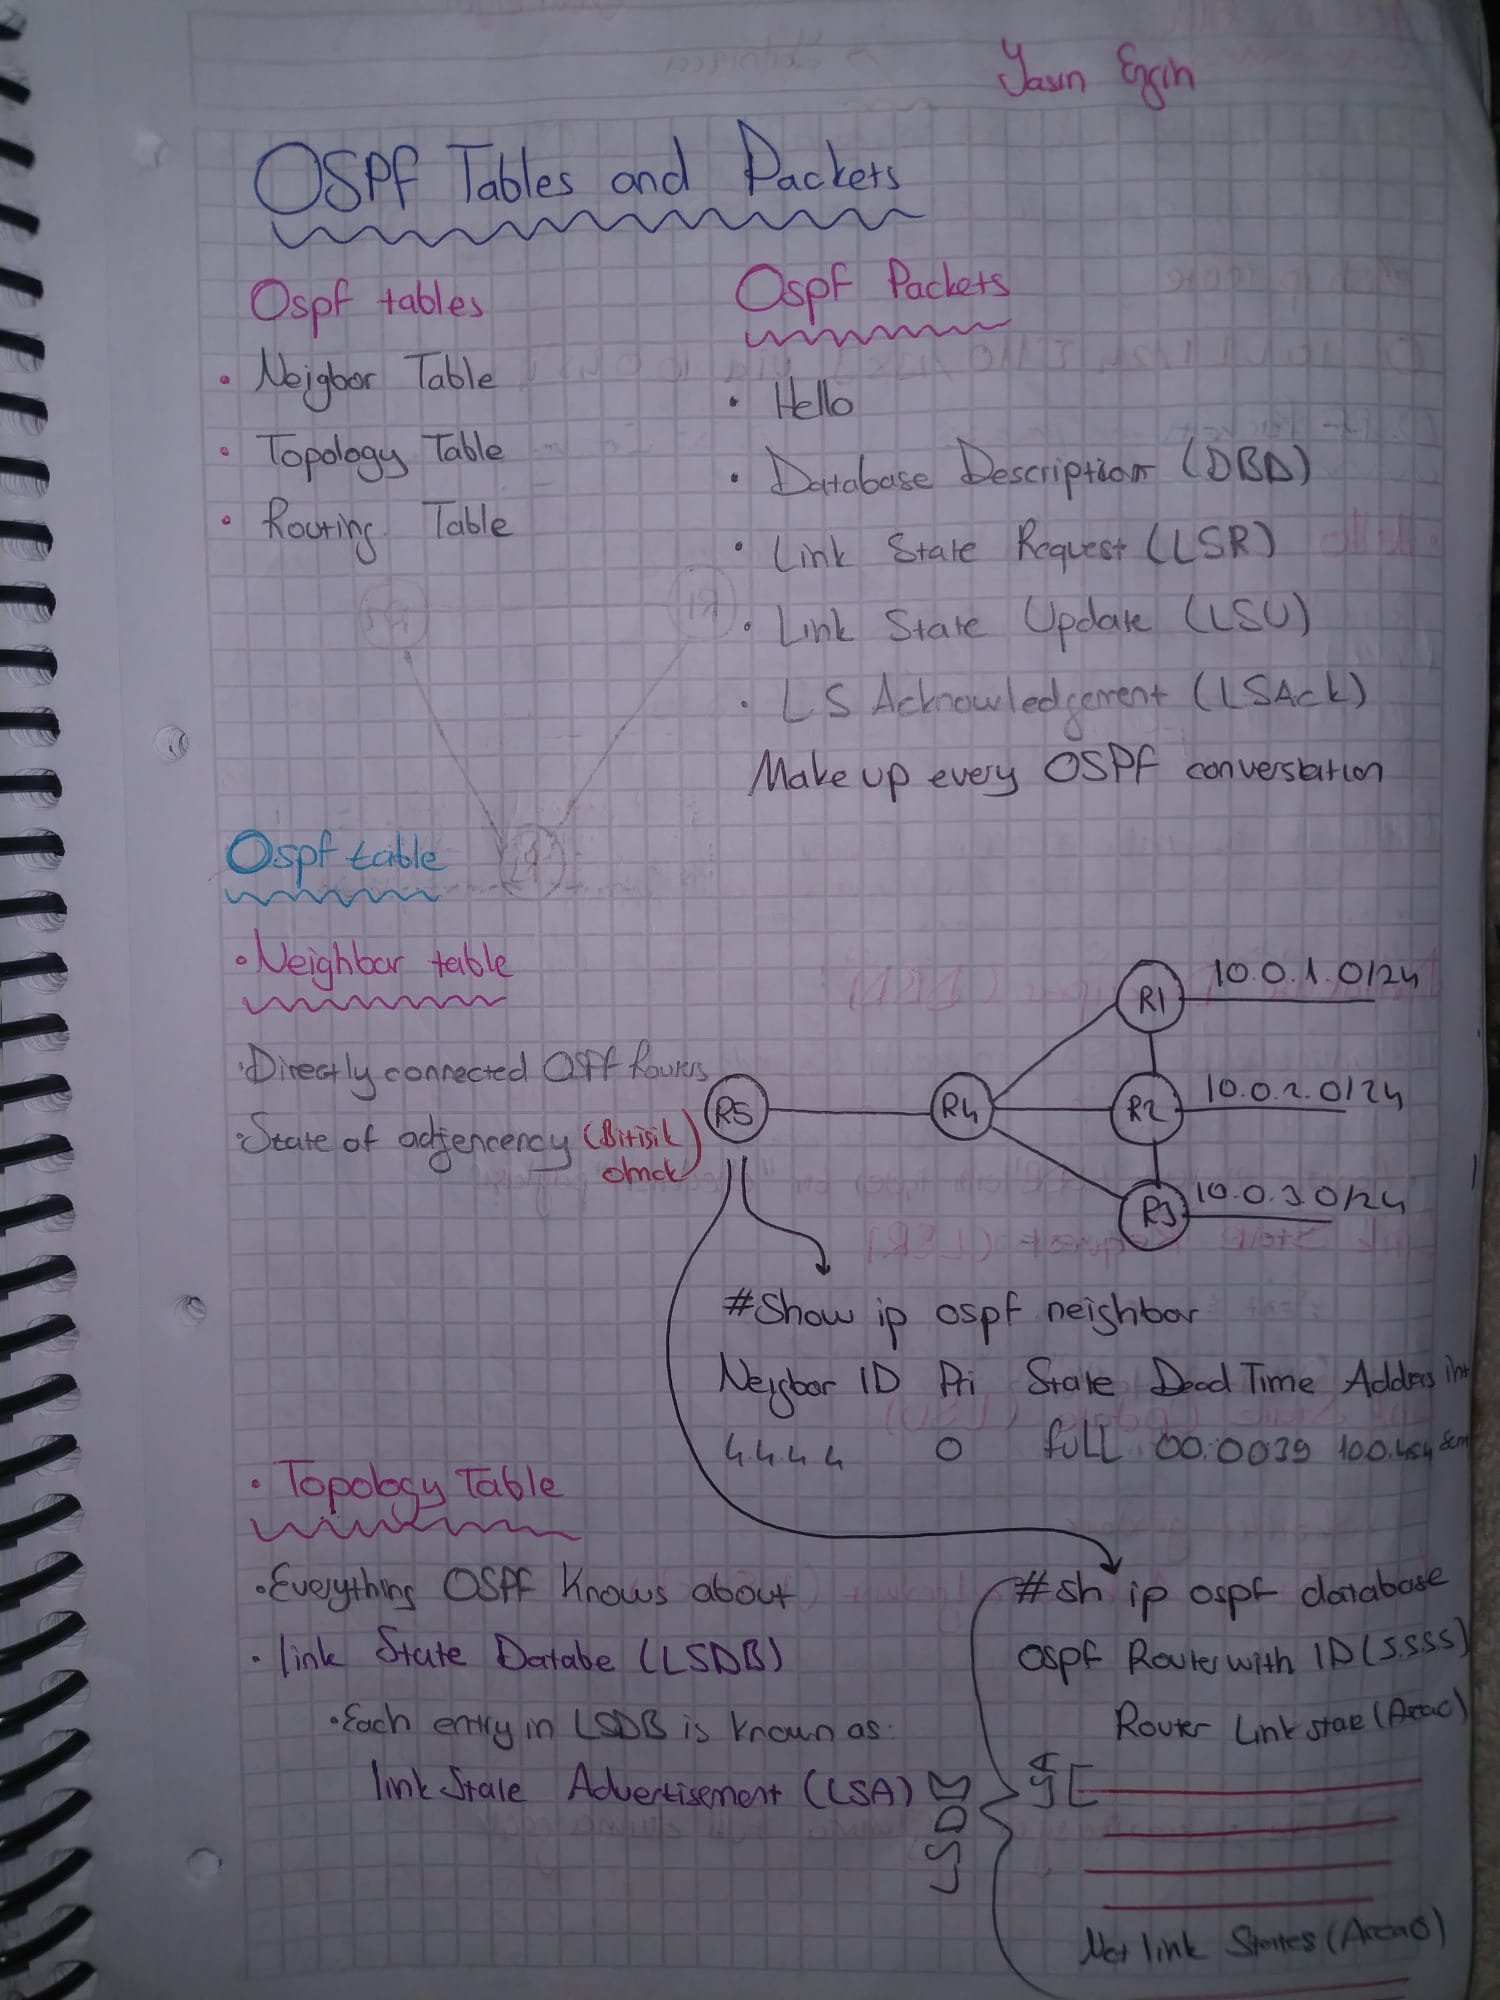 Yasin Ergin
OSPF Tables and Packets
Ospf tables
• Neigbor Table
• Topology Table
• Routing Table
Ospf Packets
• Hello
• Database Description (DBD)
• Link State Request (LSR)
• Link State Update (LSU)
• LS Acknowledgement (LSAck)
Make up every OSPF conversation
Ospf table
• Neighbor table
• Directly connected OSPF Routers
• State of adjencency (Bitişik
olmak)
R5
R4
R1
10.0.1.0/24
R2
10.0.2.0/24
R3
10.0.3.0/24
#Show ip ospf neighbor
Neigbor ID Pri State Dead Time Address int
4.4.4.4 0 full 00:0039
• Topology Table
• Everything OSPF Knows about
• link State Databe (LSDB)
• Each entry in LSDB is known as:
link State Advertisement (LSA)
#sh ip ospf database
ospf Router with ID (5.5.5.5)
Router Link state (Area0)
LSDB
Net link States (Area0)